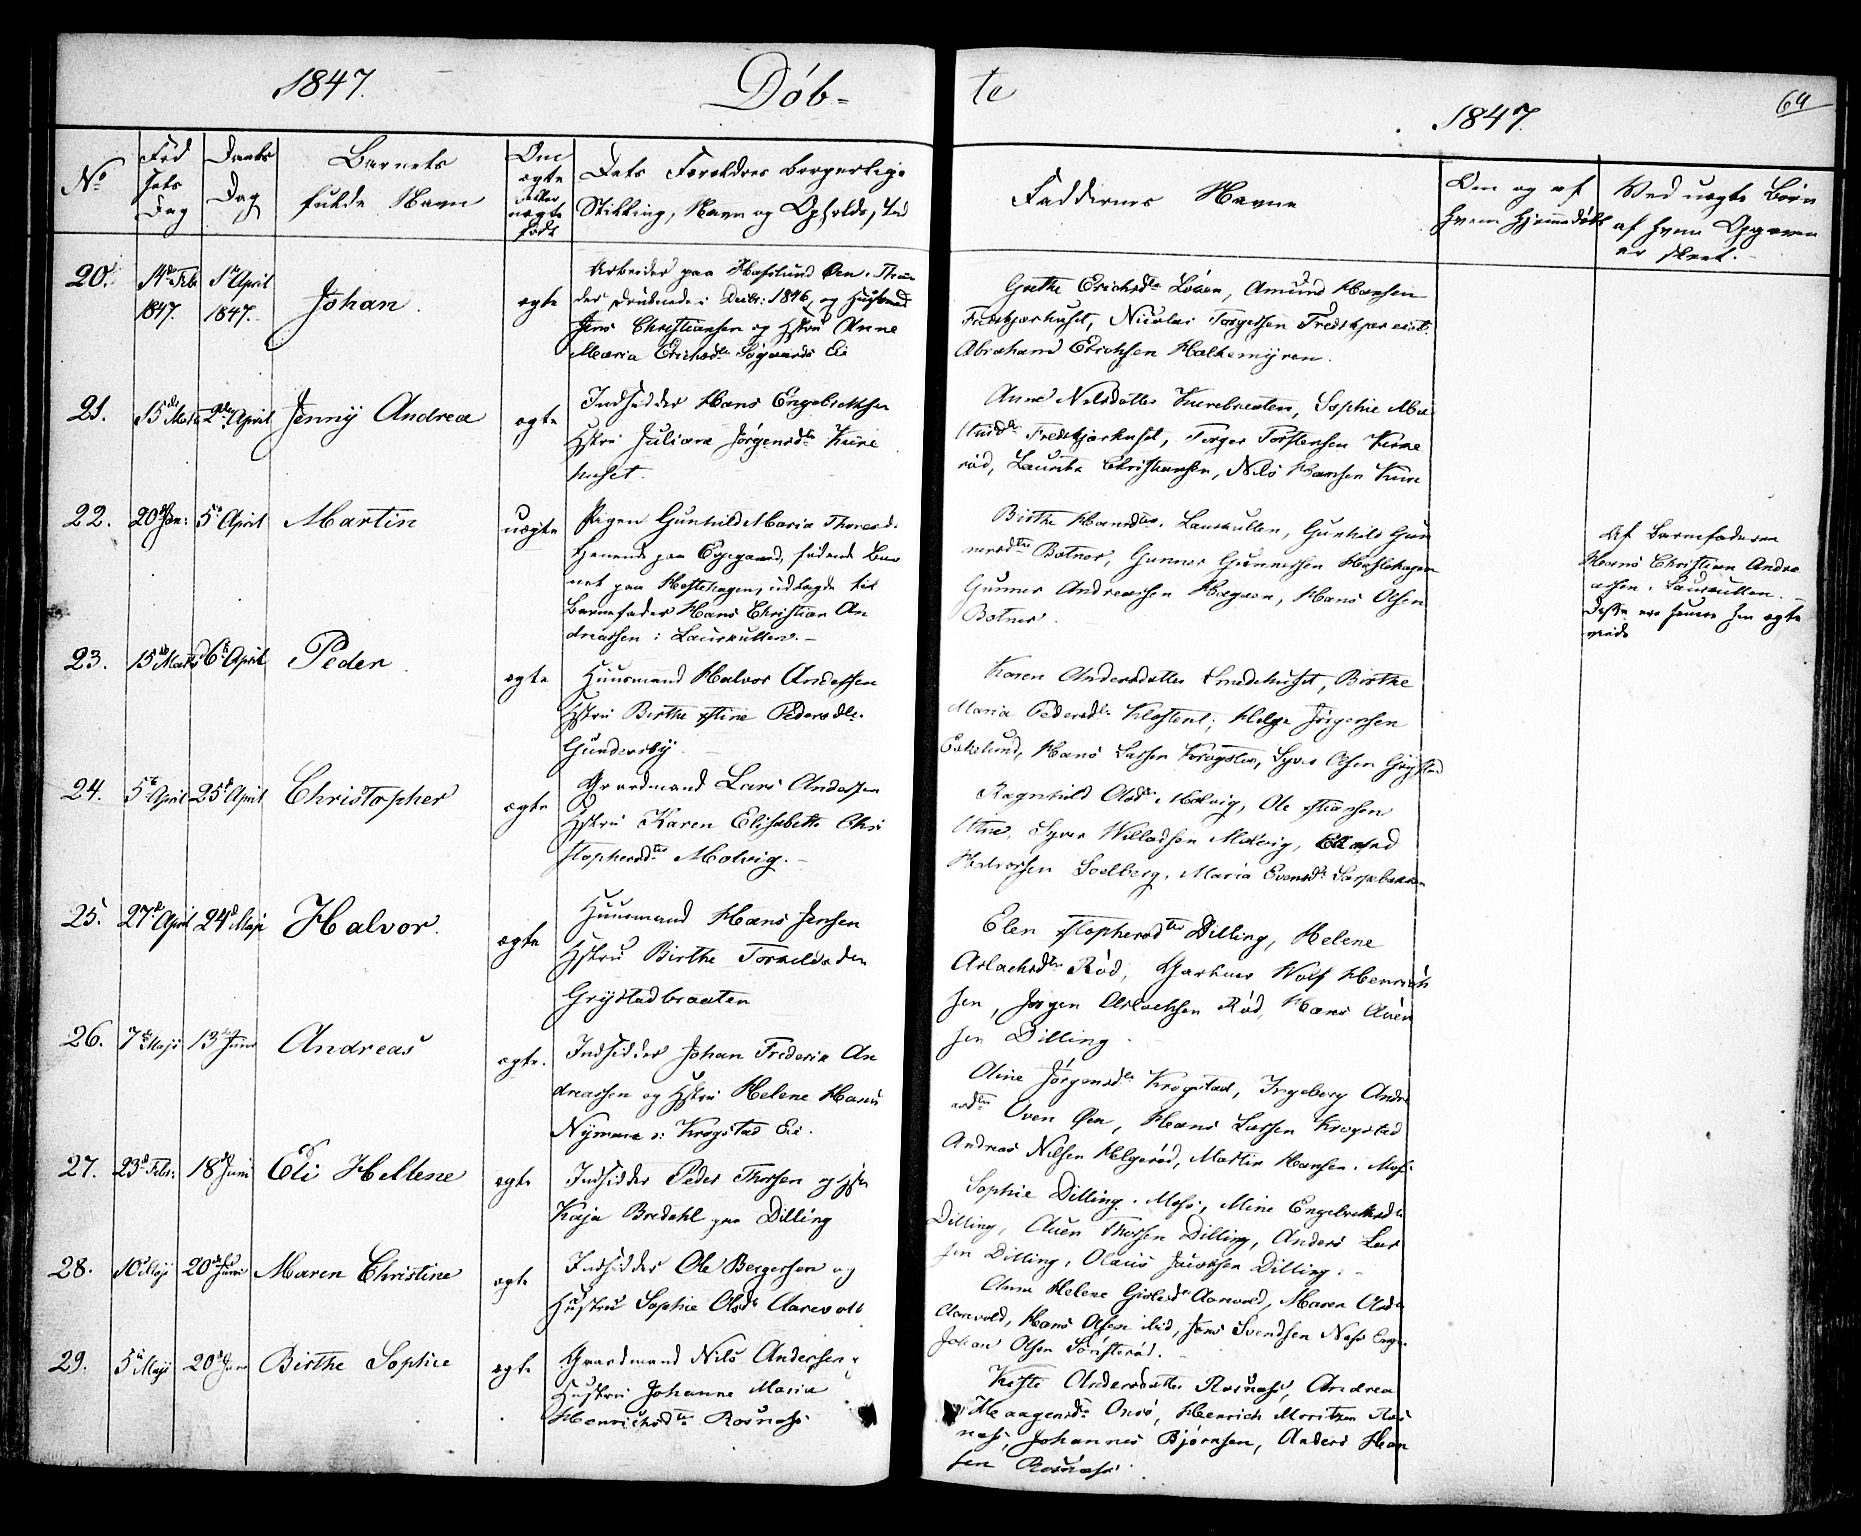 1847. Døb-
te
1847. 64
No
Fød
sels
Dag
Daabs
Dag
Barnets
fulde Navn
Om
ægte
eller
uægte
født
Dets Forældres borgerlige
Stilling, Navn og Opholds, ted
Faddernes Navne
Om og af
hvem hjemmedøbt
Ved uægte Børn
af hvem Opgaven
er skeet.
20. 14de Feb 1st April
1847. 1847.
Johan.
ægte
Arbeider paa Haslund
druknede i Decbr: 1846, og Husmd
Jens Christiansen og Hstru Anne
Maria Erichsdtr Søgaards Eie
Grethe Erichsdtr Løken, Amund Hansen
Fredskjærhuset, Nicolai Torgersen Fredskjær
Abraham Erichsen Holkemyren.
21. 15de Marts 2den April Jenny Andrea
ægte
Indsidder Hans Engebrethsen
Hstru Juliane Jørgensdtr Kure
huset.
Anne Nilsdatter Kurebraaten, Sophie
Fredskjærhuset, Torger Torstensen Kure
rød, Christiansen, Nils Hansen Kure
22. 20de Jan: 5te April Martin
uægte
Pigen Gunhild Maria Thoresd.
tjenende paa Egegaard, fødende Bar
net paa Hestehagen, udlagde til
Barnefader Hans Christian An
dreassen i Laurkullen. -
Birthe Hansdtr. Laurkullen, Gunhild Gun
nersdtr Botner, Gunner Gunnersen Hestehagen
Gunner Andreassen Hagen, Hans Olsen
Botner.
Af Barnefaderen
Hans Christian Andre
assen. Laurkullen. -
Disse ere senere hen ægte
viede
23. 15de Marts 6te April Peder.
ægte
Huusmand Halvor Andersen
Hstru Birthe Stine Pedersdtr.
Gundersby.
Karen Andersdatter Smedehuset, Birthe
Maria Pedersdtr Klosteret, Helge Jørgensen
Eskelund, Hans Larsen Krogstad, Syver Olsen Grystad
24. 5te April 25de April Christopher
ægte
Gaardmand Lars Andersen
Hstru Karen Elisabeth Chri
stophersdtr Molvig. -
Ragnhild Olsdtr Molvig, Ole Hansen
Syver Willadsen Molvig,
Halvorsen Solberg. Maria Evensdtr
25. 27de April 24de Maji Halvor.
ægte
Huusmand Hans Jensen
Hstru Birthe Torkildsdtr
Grystadbraaten
Elen Stophersdtr Dilling, Helene
Aslachsdtr Rød, Wolf Henrich
sen, Jørgen Aslachsen Rød, Hans Auen
sen Dilling.
26. 7de Maji 13de Juni Andreas
ægte.
Indsidder Johan Frederik An
dreassen og Hstru Helene Hans
Nymann i Krogstad Eie.
Oline Jørgensdtr Krogstad, Ingeborg Andre
asdtr Oven Øen, Hans Larsen Krogstad
Andreas Nilsen Helgerød, Martin Hansen. Moss
27. 23de Febr: 18de Juni Eli Hellene
ægte
Indsidder Peder Thorsen og Hstru
Kaja Bredahl paa Dilling
Sophie Dilling. Moss, Mine Engebrethsdtr
Dilling, Auen Thorsen Dilling, Anders Lar
sen Dilling, Olaus Jacobsen Dilling. -
28. 10de Maji 20de Juni Maren Christine
ægte
Indsidder Ole Bergersen og
Hustru Sophie Olsdtr Aarevold
Anne Helene Aarvold, Maren Olsdtr
Aarevold, Hans Olsen ibid, Jens Svendsen Næs Enge
Johan Olsen
29. 5te Maji 20de Juni Birthe Sophie
ægte
Gaardmand Nils Andersen.
Hustru Johanne Maria
Henrichsdtr Rosnæs.
Andersdatter Rosnæs, Andrea
Haagensdtr Onsø, Henrich Moritzen Ros
næs, Johannes Bjørnsen, Anders Han
sen Rosnæs.